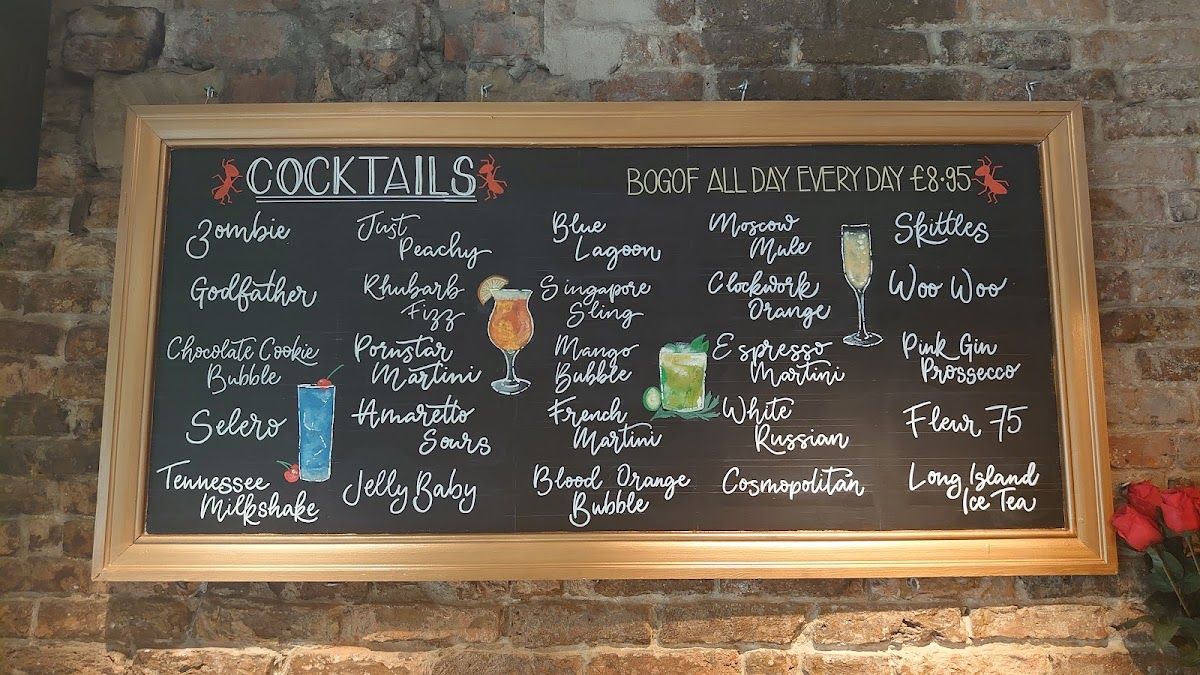 COCKTAILS
BOGOF ALL DAY EVERYDAY £8.95
Zombie
Godfather
Chocolate Cookie
Bubble
Selero
Tennessee
Milkshake
Just
Peachy
Rhubarb
Fizz
Pornstar
Martini
Amaretto
Sours
Jelly Baby
Blue
Lagoon
Singapore
Sling
Mango
Bubble
French
Martini
Blood Orange
Bubble
Moscow
Mule
Clockwork
Orange
Espresso
Martini
White
Russian
Cosmopolitan
Skittles
Woo Woo
Pink Gin
Prossecco
Fleur 75
Long Island
Ice Tea